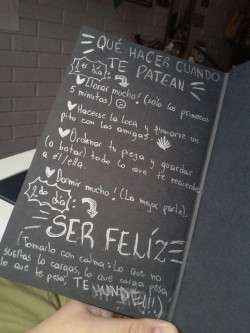 ¿QUÉ HACER CUANDO
TE PATEAN
1er día:
♥Llorar mucho! (solo los primeros
5 minutos) ☹
♥Hacerse la loca y fumarse un
pito con las amigas.
♥Ordenar tu pieza y guardar
(o botar) todo lo que te recuerde
a él/ella.
♥Dormir mucho! (La mejor parte).
2do día:
SER FELÍZ
(Tomarlo con calma: Lo que no
sueltas lo cargas, lo que carga pesa,
lo que te pesa, TE HUNDE!!!)